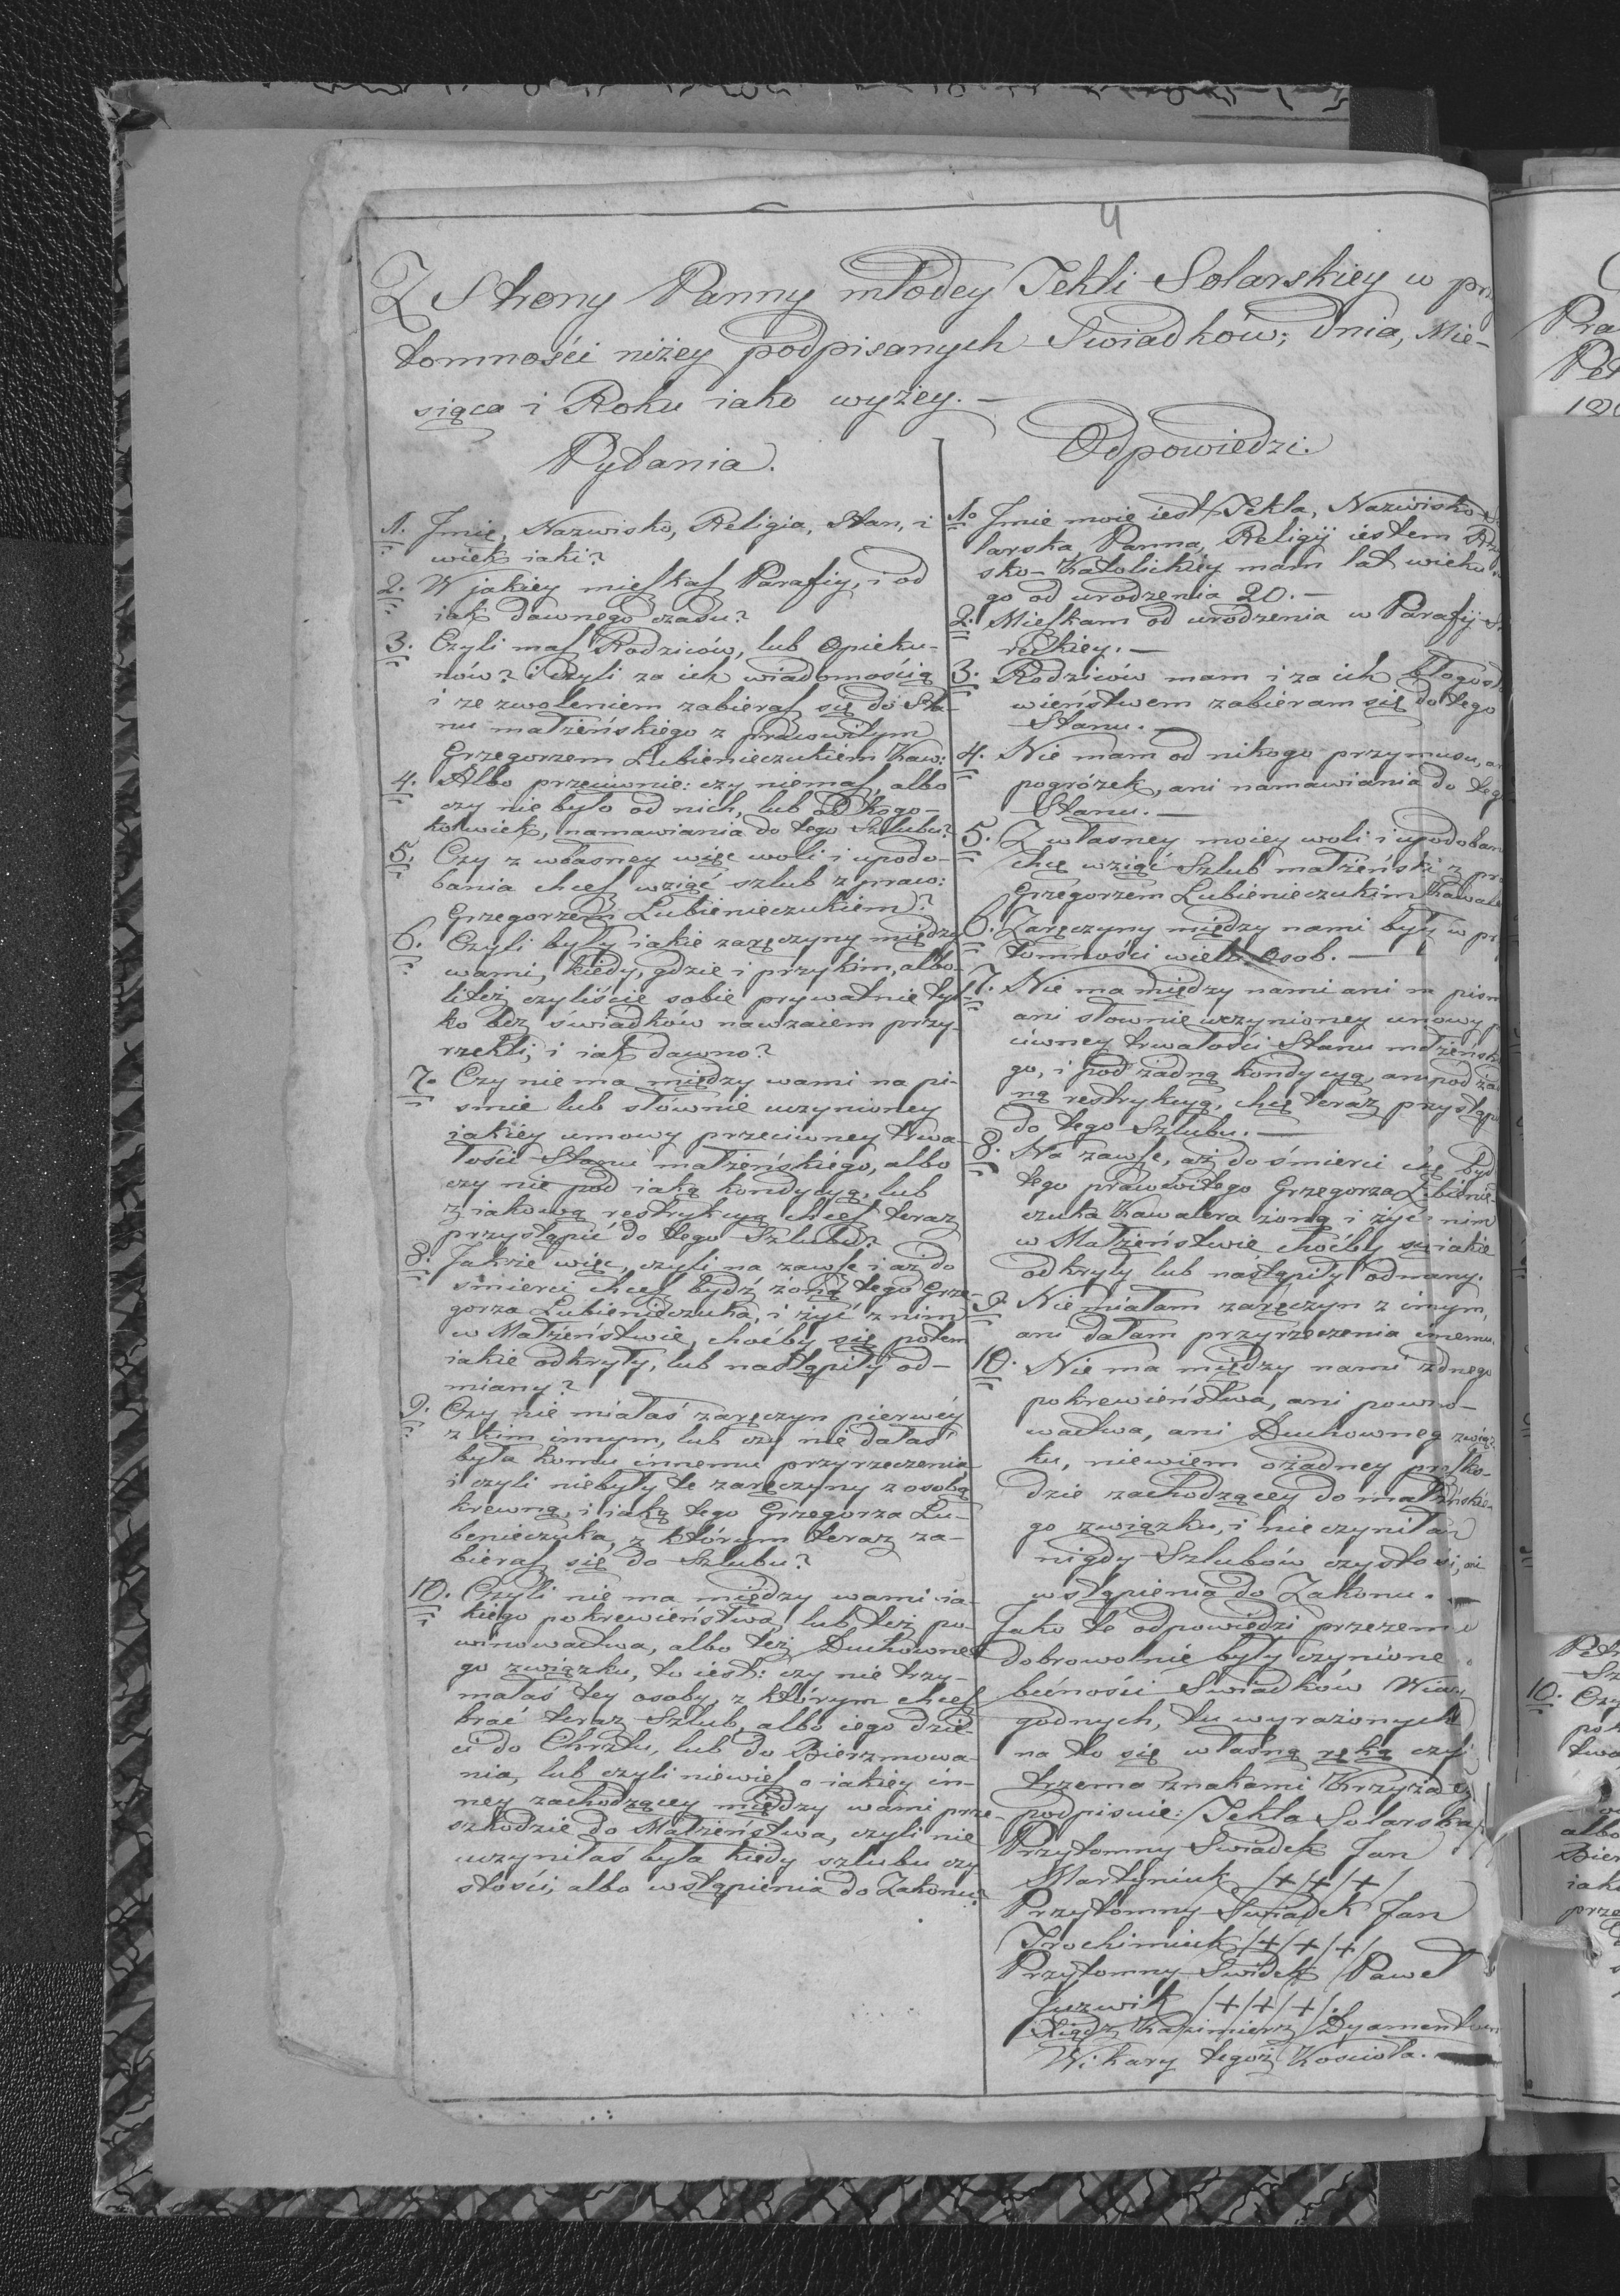 4
Z Strony Panny młodey Tekli Solarskiey w prz
tomności niżey podpisanych Swiadków; dnia, Mie-
siąca i Roku iako wyżey.—
Pytania.
1. Jmię, Nazwisko, Religia, Stan, i
wiek iaki?
2. W jakiey mieſkaſ Parafiy, i od
iak dawnego czasu?
3. Czyli maſ Rodziców, lub Opieku-
nów? i czyli za ich wiadomością
i ze zwoleniem zabieraſ się do Sta-
nu małżeńskiego z prawowitym
Grzegorzem Lubienieczukiem Kaw:
4. Albo przeciwnie: czy niemaſ, albo
czy nie było od nich, lub od kogo-
kolwiek, namawiania do tego Szlubu?
5. Czy z własney więc woli i upodo-
bania chceſ wziąć szlub z praw:
Grzegorzem Lubienieczukiem?
6. Czyli były iakie zaręczyny między
wami, kiedy, gdzie i przykim, albo-
liteż czyliście sobie prywatnie tyl-
ko bez świadków nawzaiem przy-
rzekli, i iak dawno?
7. Czy nie ma między wami na pi-
smie lub słównie uczynioney
iakiey umowy przeciwney trwa-
łości Stanu małżeńskiego, albo
czy nie pod iaką kondycyą, lub
z iakową restrykcyą chceſ teraz
przystąpić do tego Szlubu?
8. Jakże więc, czyli na zawſe i aż do
śmierci chceſ bydź żoną tego Grze-
gorza Lubienieczuka, i żyć z nim
w Małżeństwie, choćby się potem
iakie odkryły, lub nastąpiły od-
miany?
9. Czy nie miałaś zaręczyn pierwéy
z kim innym, lub czy nie dałaś
była komu innemu przyrzeczenia
i czyli niebyły te zaręczyny z osobą
krewną, i iaką tego Grzegorza Lu-
benieczuka, z którym teraz za-
bieraſ się do Szlubu?
10. Czyli nie ma między wami ia-
kiego pokrewieństwa, lub też po-
winowactwa, albo też Duchowne-
go związku, to iest: czy nie trzy-
małaś tey osoby, z którym chceſ
brać teraz Szlub, albo iego dzie-
ci do Chrztu, lub do Bierzmowa-
nia, lub czyli niewieſ o iakiey in-
ney zachodzącey między wami prze-
szkodzie do Małżeństwa, czyli nie
uczyniłaś była kiedy szlubu czy
stości, albo wstąpienia do Zakonu?
Odpowiedzi.
1o Jmie moie iest Tekla, Nazwisko So
larska, Panna, Religij iestem Rzy
sko-Katolickiéy mam lat wieku
go od urodzenia 20.—
2. Mieſkam od urodzenia w Parafij
reckiey.—
3. Rodziców mam i za ich błogosła
wieństwem zabieram się do tego
Stanu.—
4. Nie mam od nikogo przymusu, a
pogróżek, ani namawiania do teg
Stanu.—
5. Z własney moiey woli i upodoban
chcę wziąć Szlub małżeński z pr
Grzegorzem Lubienieczukim Kawale
6. Zaręczyny między nami były w pr
tomności wielu Osob.—
7. Nie ma między nami ani na pism
ani słownie uczynioney umowy p
ciwney trwałości Stanu małżeńsk
go, i pod żadną kondycyą, ani pod ża
ną restrykcyą, chcę teraz przystąp
do tego Szlubu.—
8. Na zawſe, aż do śmierci chcę byd
tego prawowitego Grzegorza Lubienie
czuka Kawalera żoną i żyć z nim
w Małżeństwie choćby się iakie
odkryły lub nastąpiły odmany.
9. Nie miałam zaręczyn z innym,
ani dałam przyrzeczenia innemu.
10. Nie ma między nami żdnego
pokrewieństwa, ani powino-
wactwa, ani Duchowneg związ
ku, niewiem ożadney preſko-
dzie zachodzącey do małżeńskie-
go związku, i nie czyniłam
nigdy Szlubów czystości, ani
wstąpienia do Zakonu.—
Jako te odpowiedzi przezemn
dobrowolnie były czynione
bećności Swiadków Wiar
godnych, tu wyrażonych
na to się własną ręką czyli
trzema znakami Krzyża S
podpisuie: Tekla Solarska
Przytomny Swiadek Jan
Martyniuk /+/+/+/
Przytomny Swiadek Jan
Trochimiuk /+/+/+/
Przytomny Swidek Paweł
Juzwik /+/+/+/.
Xiądz Kazimierz Dyamentow
Wikary tegoż Kościoła.—